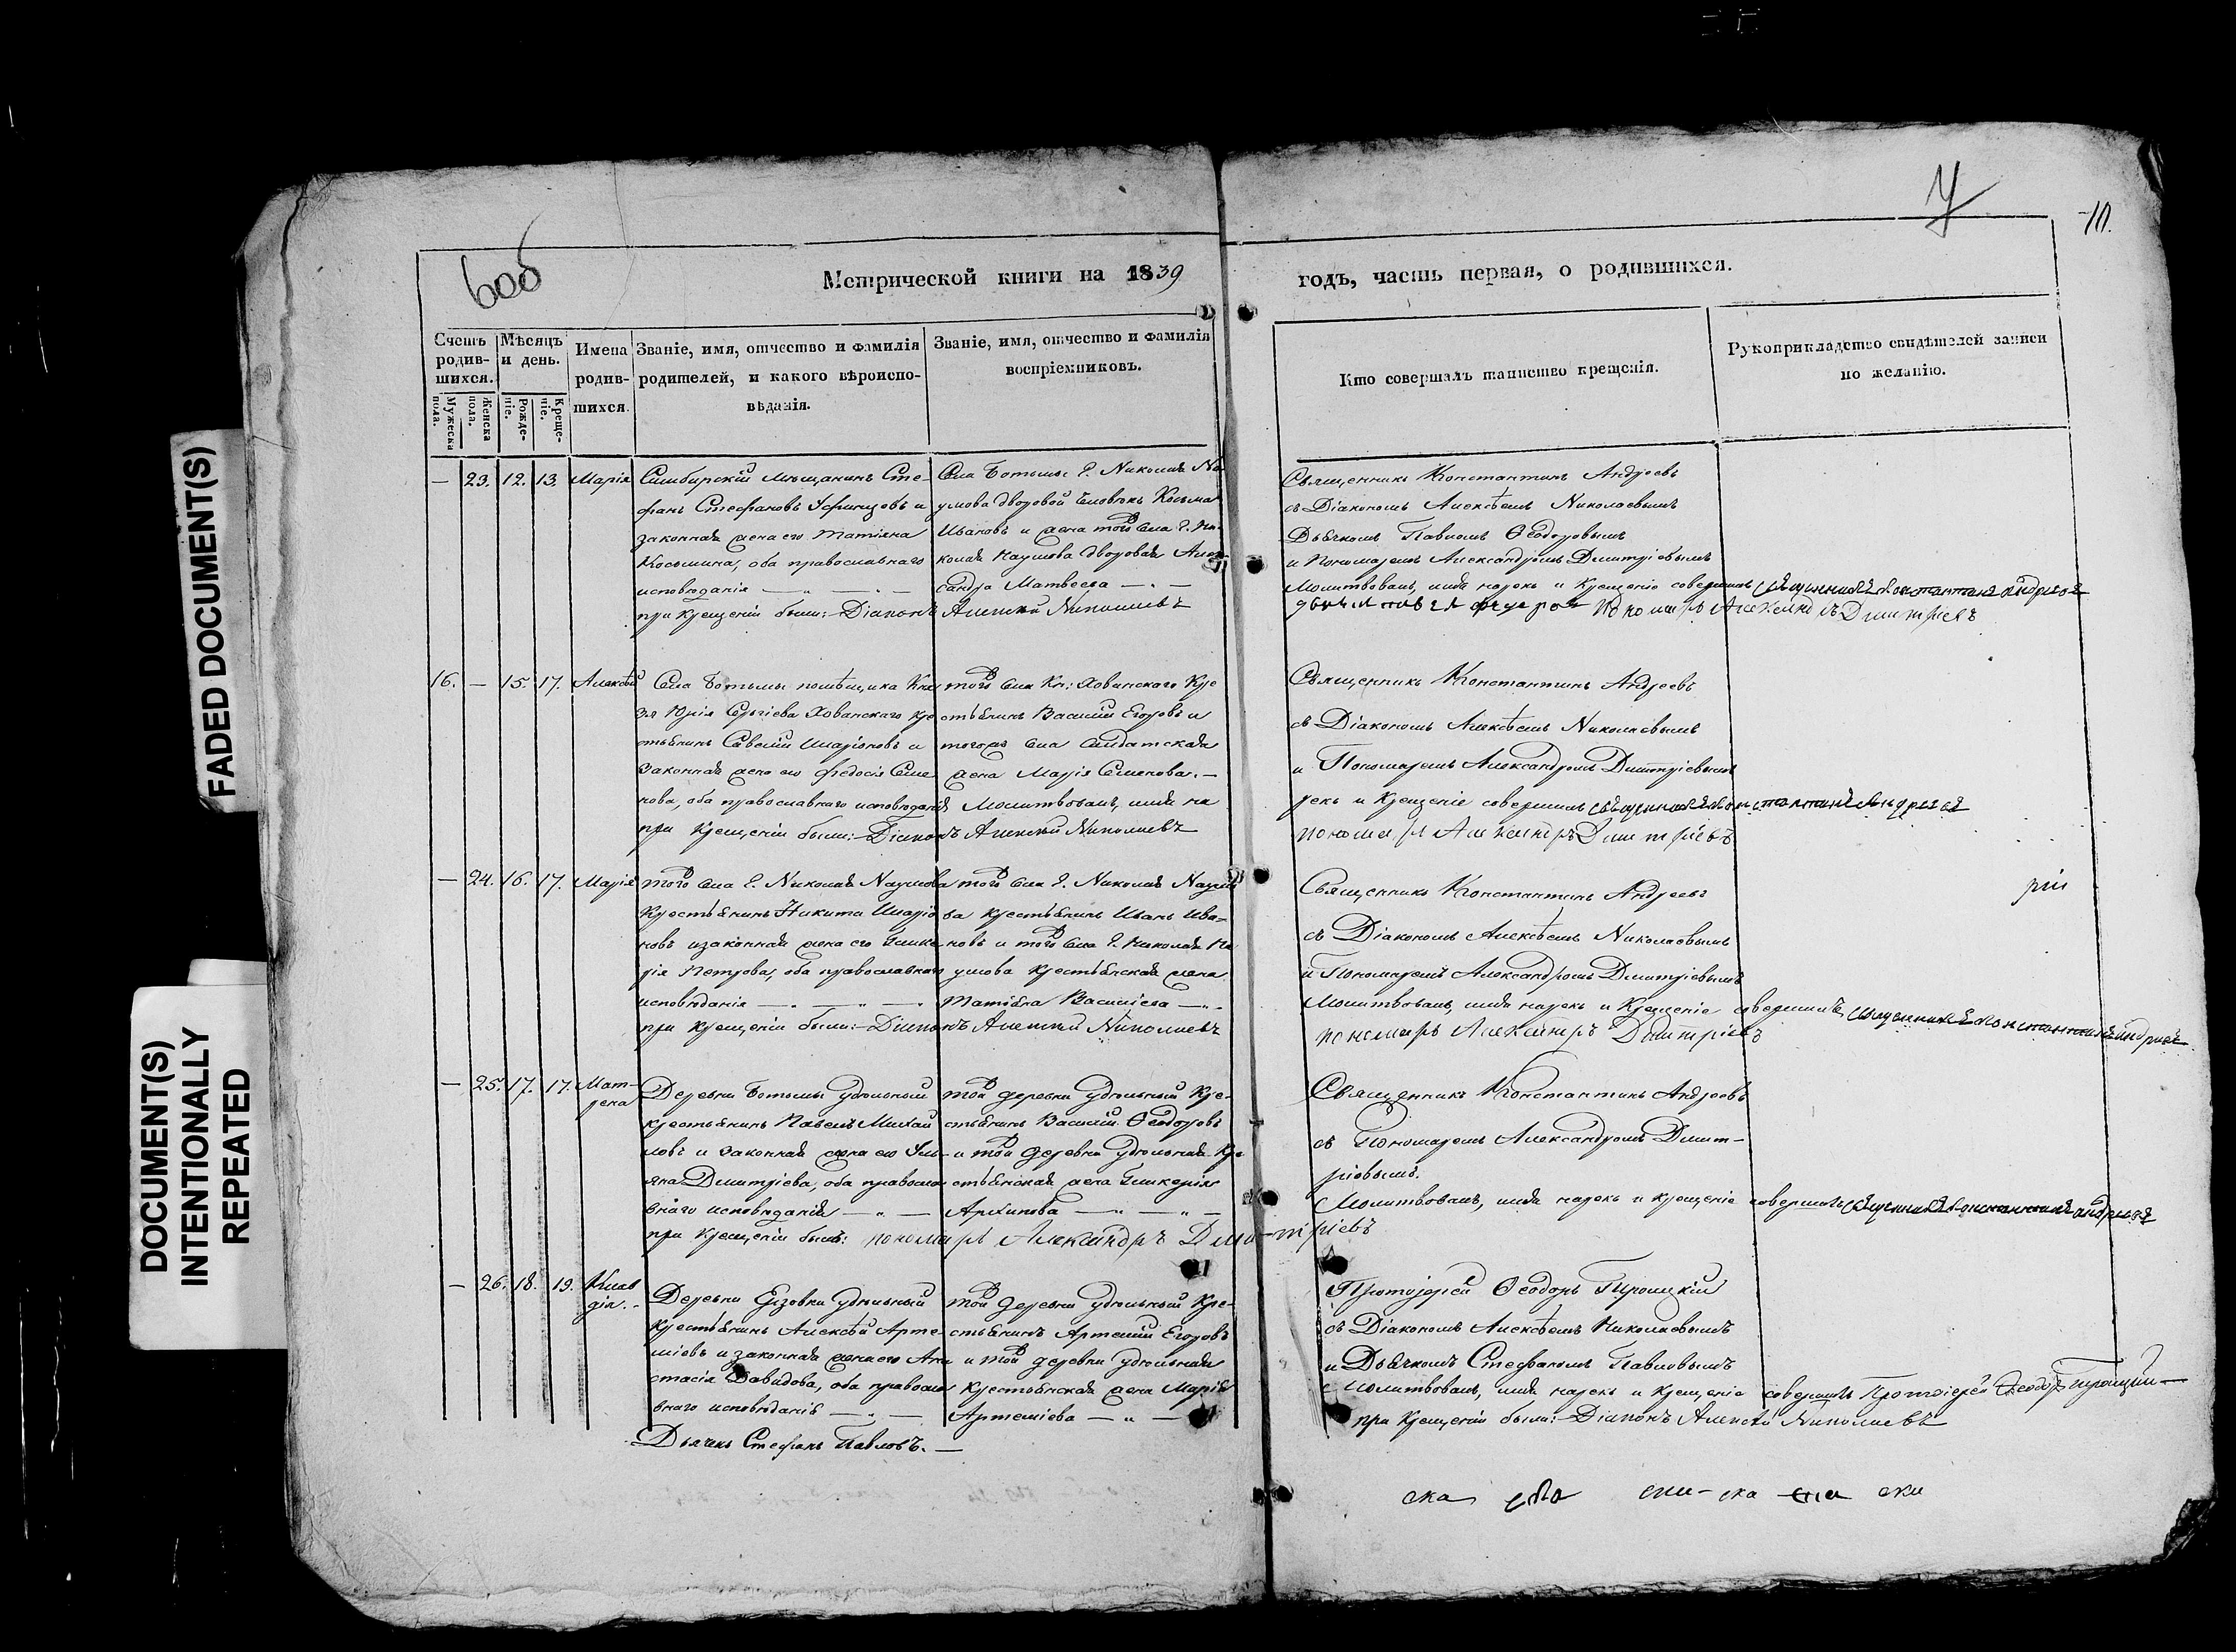 У
10.
606
Метрической книги на 1839
годъ, часть первая, о родившихся.
Счетъ родившихся.
Мужеска пола.
Женска пола.
Мѣсяцъ и день.
Рожденіе.
Крещеніе.
Имена родившихся.
Званіе, имя, отчество и фамилія
родителей, и какого вѣроиспо-
вѣданія.
Званіе, имя, отчество и фамилія
воспріемниковъ.
Кто совершалъ таинство крещенія.
Рукоприкладство свидѣтелей записи
по желанію.
— 23. 12. 13. Марія
Симбирскій мѣщанинъ Сте-
фанъ Стефановъ и
законная жена его Татіяна
Косьмина, оба православнаго
исповѣданія
при крещеніи были: Діаконъ Алексѣй Николаевъ
Села Ботьмы Г. Николая На
умова дворовой человѣкъ Косьма
Ивановъ и жена того села Г. Ни
колая Наумова дворовая Алек
сандра Матвеева
Священникъ Константинъ Андреевъ
съ Діакономъ Алексѣемъ Николаевымъ
Дьячкомъ Павломъ Ѳеодоровымъ
и Пономаремъ Александромъ Димитріевымъ
Молитвовалъ, имя нарекъ и крещеніе совершалъ священникъ Константинъ Андреевъ
Пономарь Александръ Димитріевъ
16. — 15. 17. Алексѣй
Села Ботьмы помѣщика Кня
зя Юрія Сергіева Хованскаго кре
стьянинъ Савелій Иларіоновъ и
законная жена его Федосія Семе
нова, оба православнаго исповѣданія
при крещеніи были: Діаконъ Алексѣй Николаевъ
того села Кн: Хованскаго кре
стьянинъ Василій Егоровъ и
тогожъ села солдатская
жена Марія Семенова.—
Молитвовалъ, имя на
Священникъ Константинъ Андреевъ
съ Діакономъ Алексѣемъ Николаевымъ
и Пономаремъ Александромъ Димитріевымъ
рекъ и крещеніе совершалъ священникъ Константинъ Андреевъ
пономарь Александръ Димитріевъ
— 24. 16. 17. Марія
того села Г. Николая Наумова
крестьянинъ Никита Иларіо
новъ и законная жена его Глике
рія Петрова, оба православнаго
исповѣданія
при крещеніи были: Діаконъ Алексѣй Николаевъ
того села Г. Николая Наумо
ва крестьянинъ Иванъ Ива-
новъ и того села Г. Николая На
умова крестьянская жена
Татіяна Васильева
Священникъ Константинъ Андреевъ
съ Діакономъ Алексѣемъ Николаевымъ
и Пономаремъ Александромъ Димитріевымъ
Молитвовалъ, имя нарекъ и крещеніе совершалъ священникъ Константинъ Андреевъ
пономарь Александръ Димитріевъ
— 25. 17. 17. Мат-
рена
Деревни Ботьмы удѣльный
крестьянинъ Павелъ Михай
ловъ и законная жена его Уль-
яна Димитріева, оба правосла
внаго исповѣданія
при крещеніи былъ: пономарь Александръ Димитріевъ
той деревни удѣльный кре-
стьянинъ Василій Ѳеодоровъ
и той деревни удѣльная кре
стьянская жена Гликерія
Архипова
Священникъ Константинъ Андреевъ
съ Пономаремъ Александромъ Димит-
ріевымъ.
Молитвовалъ, имя нарекъ и крещеніе совершалъ священникъ Константинъ Андреевъ
— 26. 18. 19. Клав
дія.
Деревни удѣльный
крестьянинъ Алексѣй Арте-
міевъ и законная жена его Ана
стасія Давидова, оба правосла
внаго исповѣданія
Дьячекъ Стефанъ Павловъ.—
той деревни удѣльный кре-
стьянинъ Артемій Егоровъ
и той деревни удѣльная
крестьянская жена Марія
Артеміева
Протоіерей Ѳеодоръ Троицкій
съ Діакономъ Алексѣемъ Николаевымъ
и Дьячкомъ Стефаномъ Павловымъ
Молитвовалъ, имя нарекъ и крещеніе совершалъ Протоіерей Ѳеодоръ Троицкій
при крещеніи были: Діаконъ Алексѣй Николаевъ
FADED DOCUMENT(S)
DOCUMENT(S)
INTENTIONALLY
REPEATED